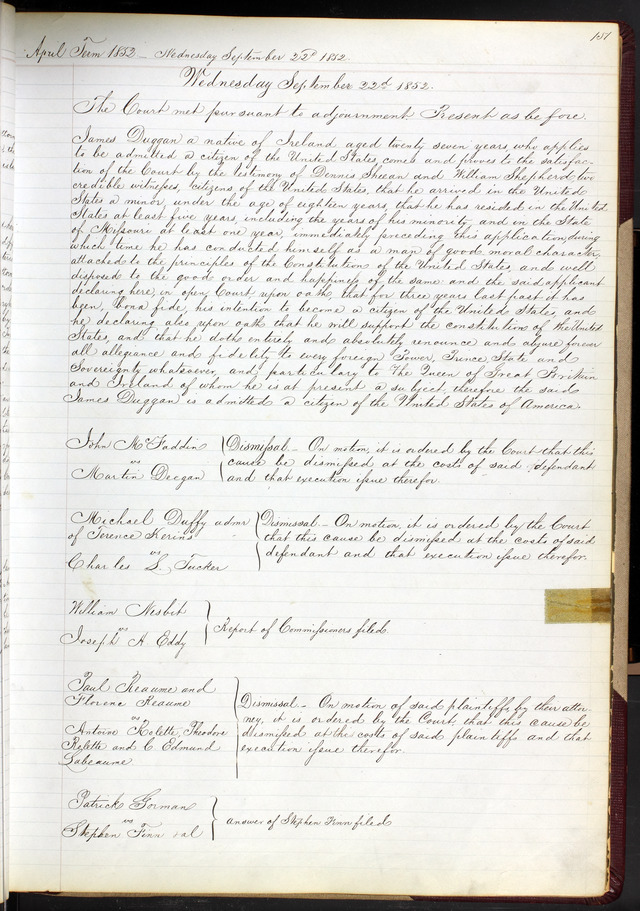 151
April Term 1852 – Wednesday September 22d 1852.
Wednesday September 22d 1852.
The Court met pursuant to adjournment Present as before.
James Duggan a native of Ireland aged twenty seven years, who applies
to be admitted a citizen of the United States, comes and proves to the satisfac-
tion of the Court by the testimony of Dennis Sheean and William Shepherd two
credible witnesses, citizens of the United States, that he arrived in the United
States a minor, under the age of eighteen years, that he has resided in the United
States at least five years, including the years of his minority, and in the State
of Missouri at least one year, immediately preceding this application, during
which time he has conducted himself as a man of good moral character,
attached to the principles of the Constitution of the United States, and well
disposed to the good order and happiness of the same and the said applicant
declaring here in open Court, upon oath, that for three years last past it has
been, bona fide, his intention to become a citizen of the United States, and
he declaring also upon oath that he will support the constitution of the United
States, and that he doth entirely and absolutely renounce and abjure forever
all allegiance and fidelity to every foreign Power, Prince, State and
Sovereignty whatsoever, and particularly to The Queen of Great Britain
and Ireland of whom he is at present a subject, therefore the said
James Duggan is admitted a citizen of the United States of America.
John McFaddin
vs
Martin Deegan
Dismissal – On motion, it is ordered by the Court that this
cause be dismissed at the costs of said defendant
and that execution issue therefor.
Michael Duffy admr
of Terence Kerins
vs
Charles L. Tucker
Dismissal – On motion, it is ordered by the Court
that this cause be dismissed at the costs of said
defendant and that execution issue therefor.
William Nesbit
vs
Joseph A. Eddy
Report of Commissioners filed.
Paul Reaume and
Florence Reaume
vs
Antoine Rolette, Theodore
Rolette and C. Edmund
Labeaume
Dismissal – On motion of said plaintiffs, by their attor-
ney, it is ordered by the Court, that this cause be
dismissed at the costs of said plaintiffs and that
execution issue therefor.
Patrick Gorman
vs
Stephen Finn et al
answer of Stephen Finn filed